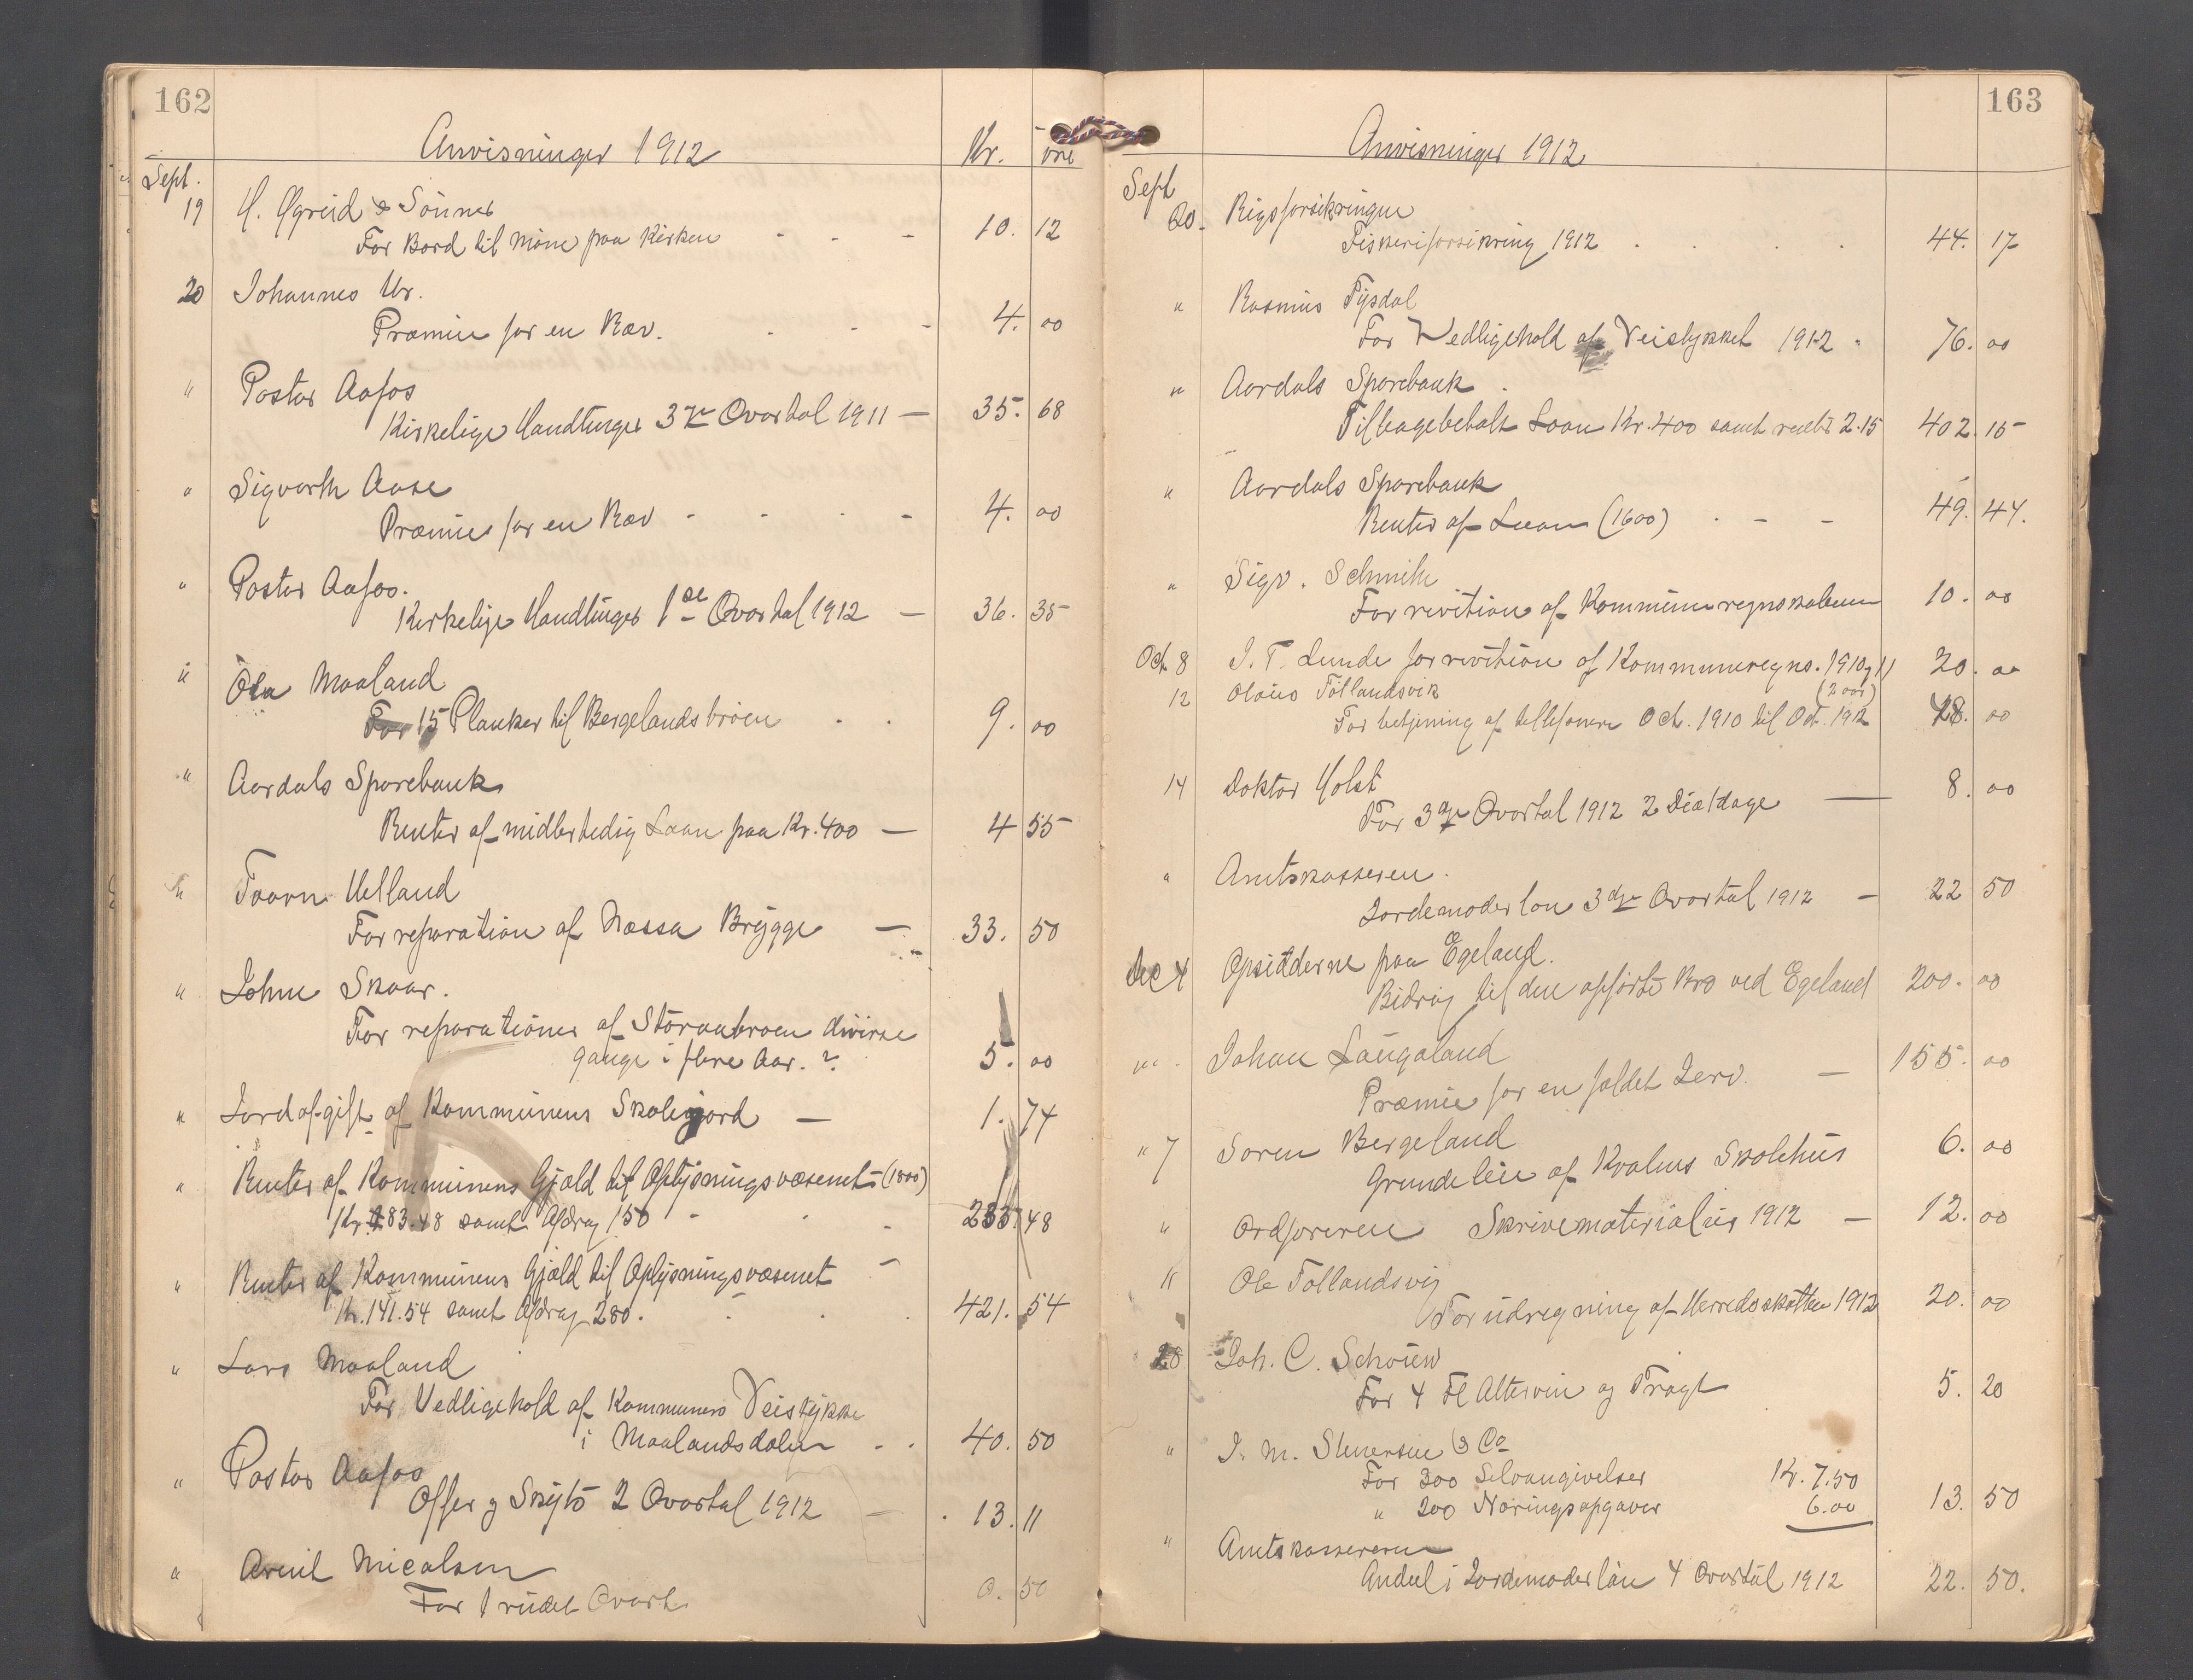 162
Anvisninger 1912
Kr.
öre
Sept.
19 H. Øgreid & Sönner
For Bord til Möne paa Kirken - - - 10. 12
20 Johannes Ur.
Præmie for en Ræv. - - - 4. 00
" Pastor Aafos
Kirkelige Handlinger 3die Qvartal 1911 — 35. 68
" Sigvarth Aase
Præmie for en Ræv - - - - 4. 00
" Pastor Aafos.
Kirkelige Handlinger 1ste Qvartal 1912 — 36. 35
" Ola Maaland
For 15 Planker til Bergelandsbroen - - 9. 00
" Aardals Sparebank
Renter af midlertedig Laan paa Kr. 400 — 4 55
" Taarn Helland
For reparation af Næssa Brygge — 33. 50
" Johne Skaar.
For reparationer af Storaabroen diverse
gange i flere Aar. 5. 00
" Jordafgift af Kommunens Skolejord — 1. 74
" Renter af Kommunens Gjæld til Oplysningsvæsenet (1800)
Kr. 83.48 samt Afdrag 150 - - - 233. 48
" Renter af Kommunens Gjæld til Oplysningsvæsenet —
Kr. 141.54 samt Afdrag 280. - - - 421. 54
" Lars Maaland
For Vedligehold af Kommunens Veistykke
i Maalandsdalen - - 40. 50
" Pastor Aafos
Offer og Skyts 2 Qvartal 1912 — 13. 11
" Arnit Micalsen
For 1 rudet Qvart 0. 50
163
Anvisninger 1912
Sept
20. Rigsforsikringen
Fiskeriforsikring 1912 . . . . 44. 17
" Rasmus Tysdal
For Vedligehold af Veistykket 1912 " 76. 00
" Aardals Sparebank.
Tilbagebetalt Laan Kr. 400 samt renter 2.15 402. 15
" Aardals Sparebank
Renter af Laan (1600) - - - 49. 44.
" Sigv. Schmith
For revition af Kommuneregnskaberne 10. 00
Oct. 8 J. T. Lunde for revition af Kommuneregns. 1910 og 11 20. 00
12 Olaus Tollandsvik (2 aar)
For betjening af tellefonen Oct. 1910 til Oct. 1912 48. 00
14 Doktor Holst
For 3die Qvartal 1912 2 Diætdage — 8. 00
" Amtskasseren.
Jordemoderlön 3die Qvartal 1912 — 22 50
Dec 4 Opsidderne paa Egeland.
Bidrag til den opförte Bro ved Egeland 200. 00
" Johan Laugaland
Præmie for en fældet Jerv. — 155. 00
" 7 Soren Bergeland
Grundeleie af Kvalnes Skolehus 6. 00
" Ordföreren Skrivematerialier 1912 — 12. 00
" Ole Tollandsvig
For udregning af Herredsskatten 1912 20. 00
28 Joh. C. Schöien
For 4 Fl Altervin og Fragt 5. 20
" J. M. Stenersen & Co
For 300 Selvangivelser Kr. 7.50
" 200 Næringsopgaver 6.00 13. 50
" Amtskassereren
Andel i Jordemoderlön 4 Qvartal 1912 22. 50.